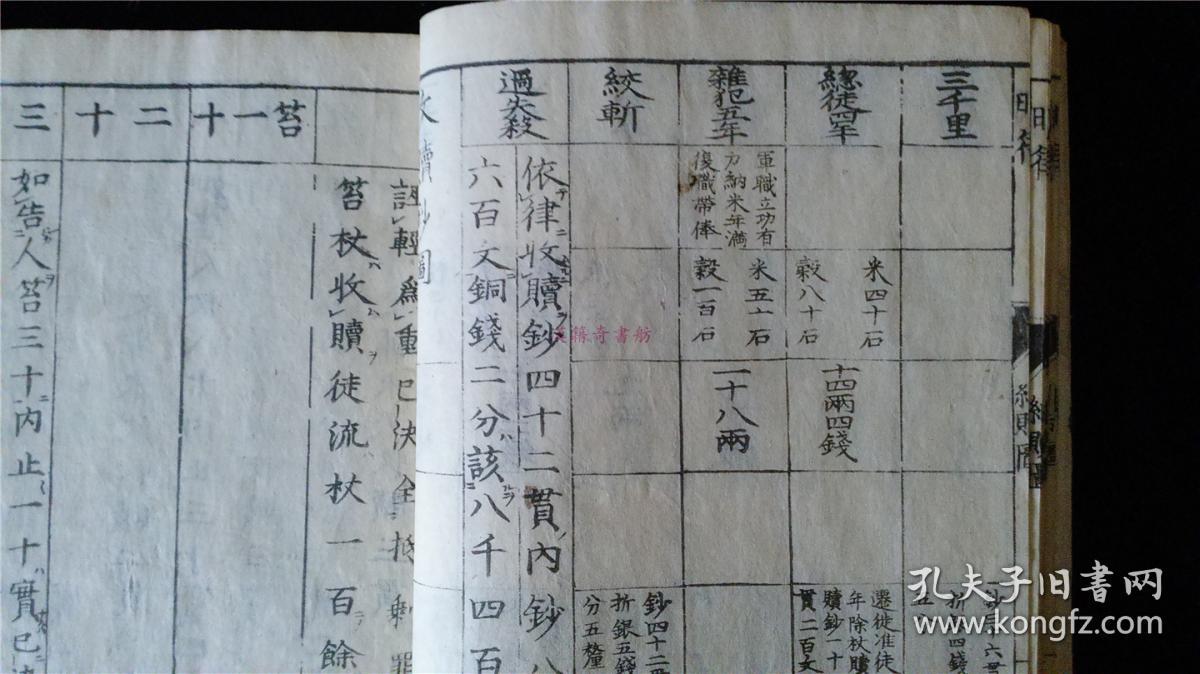 三千里
總徒四年
米四十石
穀八十石
十四兩四錢
遷徙准徒
年除杖贖
贖鈔一十
貫二百文
雜犯五年
軍職立功有
力納米年滿
復職帶俸
米五十石
穀一百石
一十八兩
絞斬
鈔四十二
折銀五錢
分五釐
過失殺
依律收贖鈔四十二貫內鈔八
六百文銅錢二分該八千四百
收贖鈔圖
誣輕爲重已決全抵剩罪
笞杖收贖徒流杖一百餘
笞一十
二十
三
如告人笞三十內止一十實已
漢籍奇書舫
孔夫子旧書网
www.kongfz.com